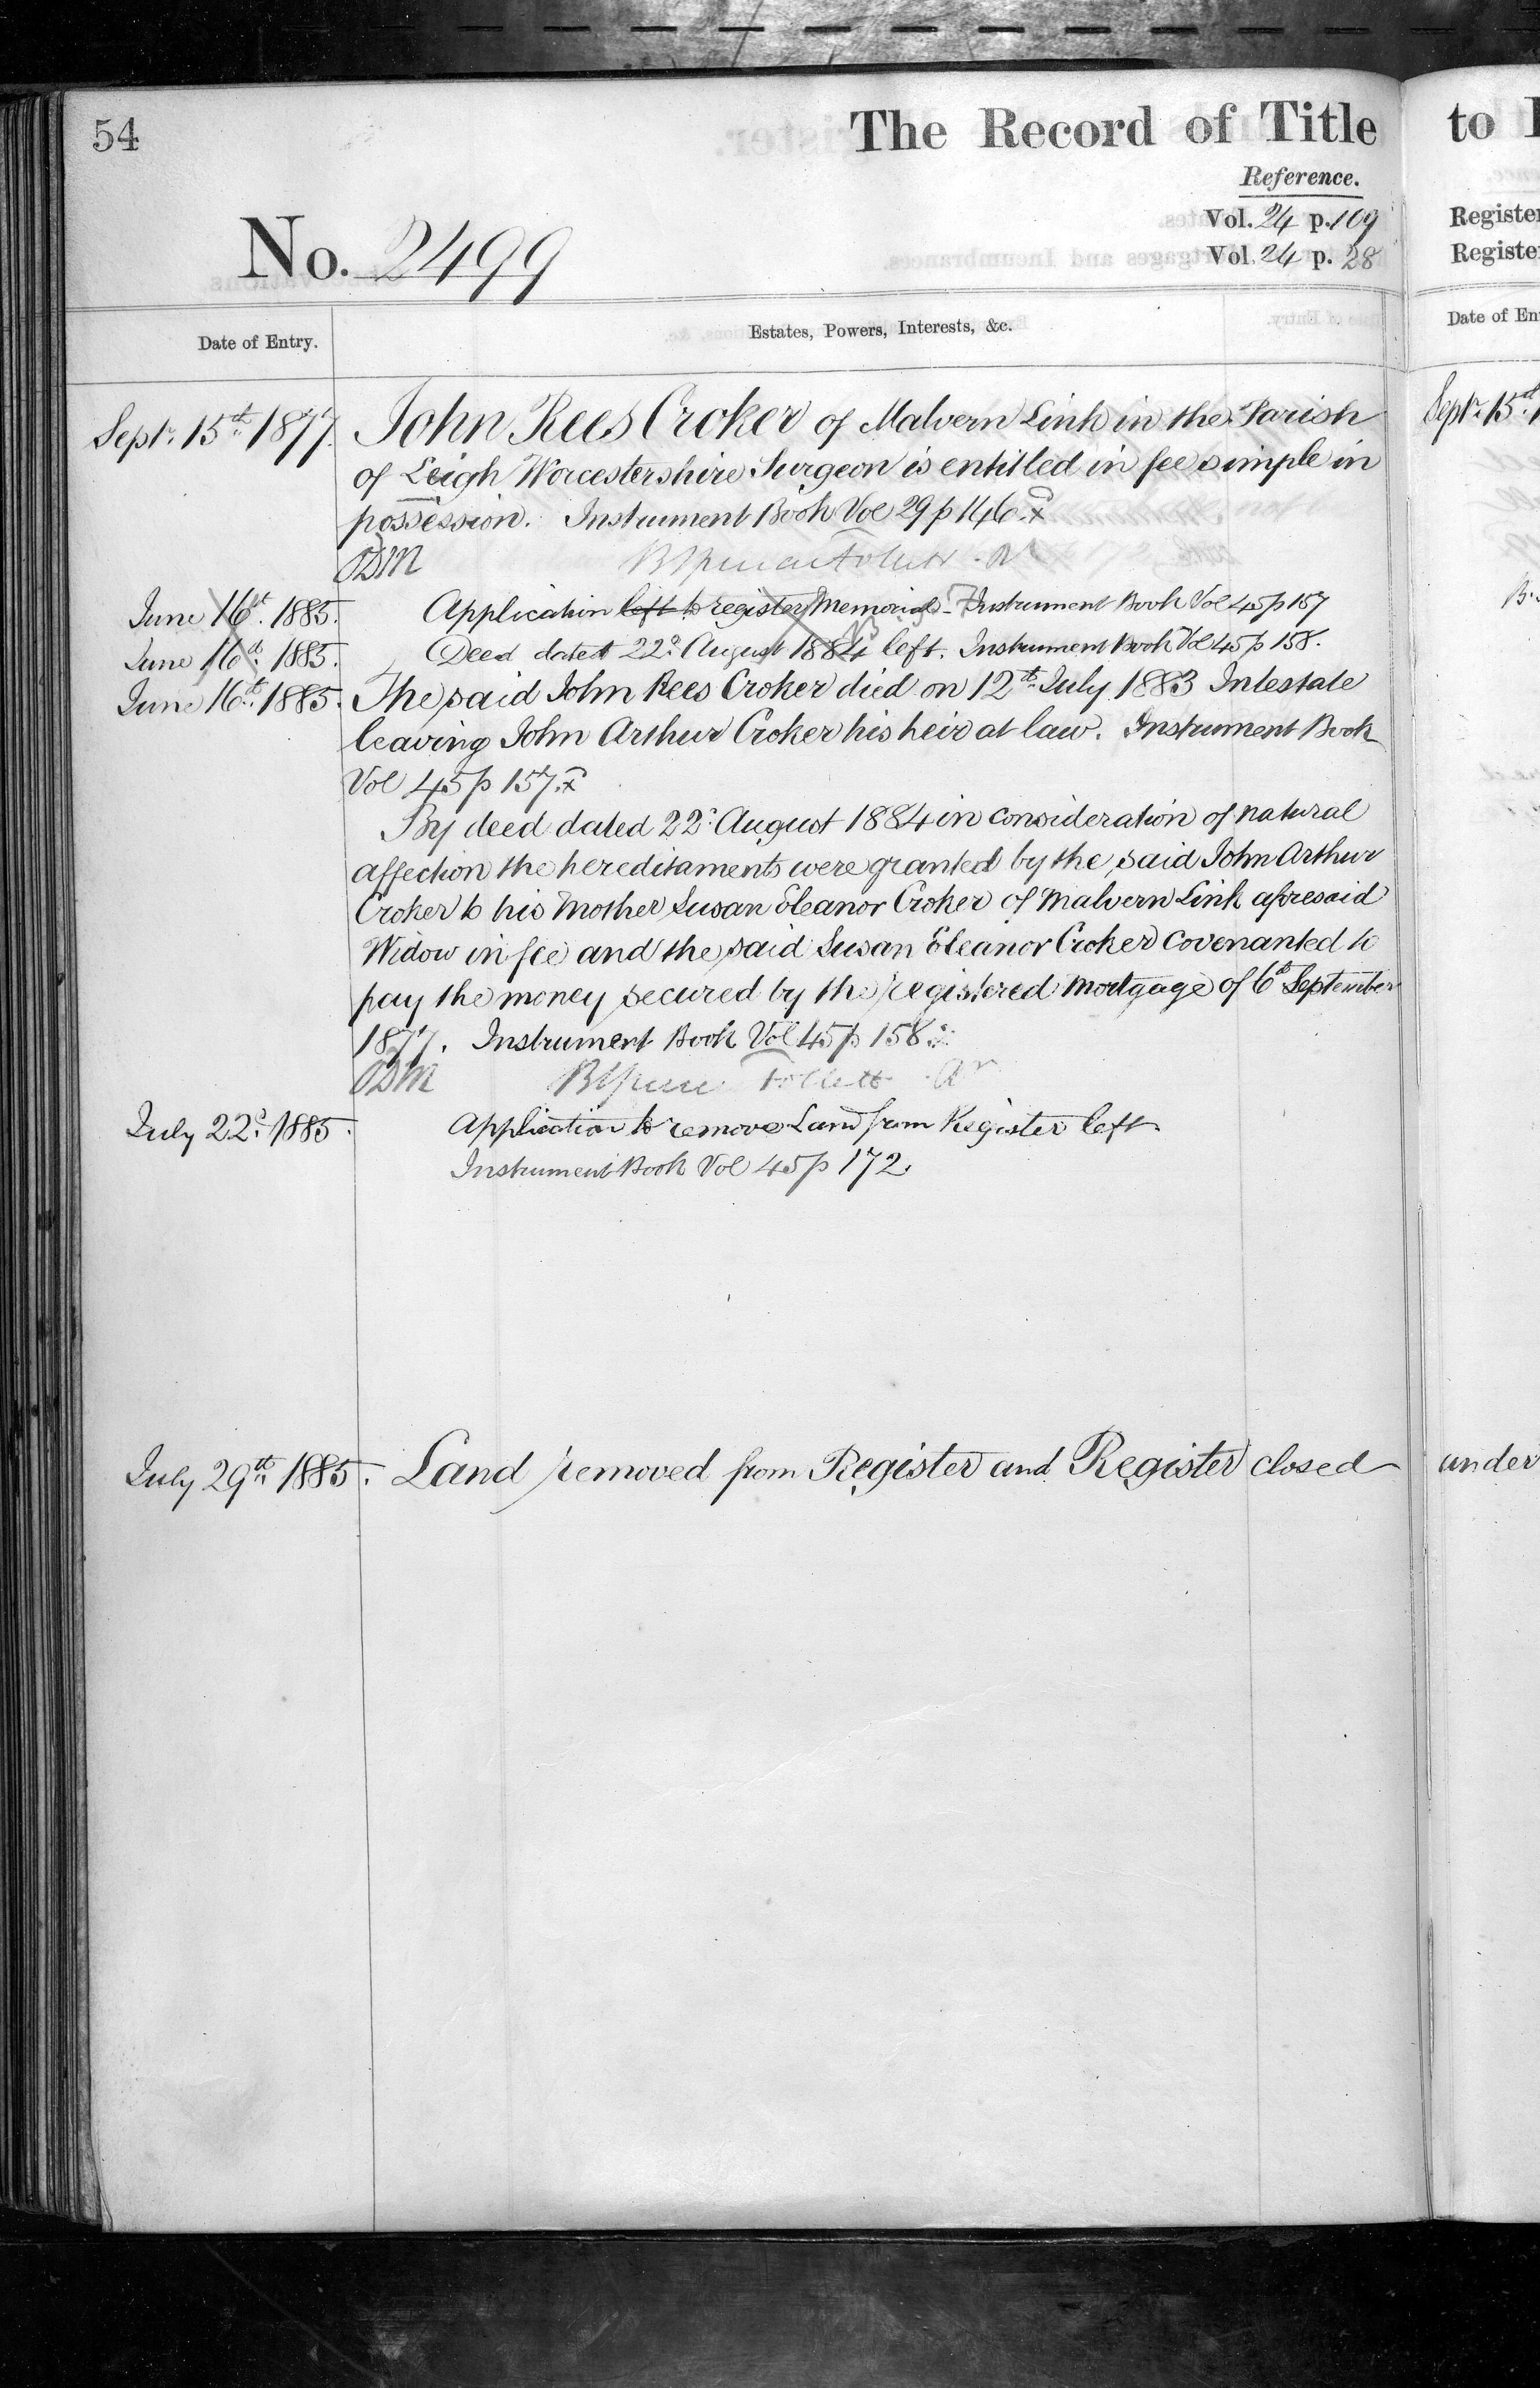 54
The Record of Title
Reference.
Vol. 24 p. 109
No. 2499
Vol. 24 p. 28
Date of Entry.
Estates, Powers, Interests, &c.
Septr. 15th 1877. John Rees Croker of Malvern Link in the Parish
of Leigh Worcestershire Surgeon is entitled in fee simple in
possession. Instrument Book Vol 29 p 146.
Follett
June 16th 1885. Application left to register Memorial Instrument Book Vol 45 p 157
June 16th 1885. Deed dated 22d August 1884 left. Instrument Book Vol 45 p 158.
June 16th 1885. The said John Rees Croker died on 12th July 1883 Intestate
leaving John Arthur Croker his heir at law. Instrument Book
Vol 45 p 157.
By deed dated 22d August 1884 in consideration of natural
affection the hereditaments were granted by the said John Arthur
Croker to his Mother Susan Eleanor Croker of Malvern Link aforesaid
Widow in fee and the said Susan Eleanor Croker covenanted to
pay the money secured by the registered Mortgage of 6th September
1877. Instrument Book Vol 45 p 158
Follett
July 22d 1885. Application to remove Land from Register left
Instrument Book Vol 45 p 172.
July 29th 1885. Land removed from Register and Register closed
to
Date of
Septr. 15th
under